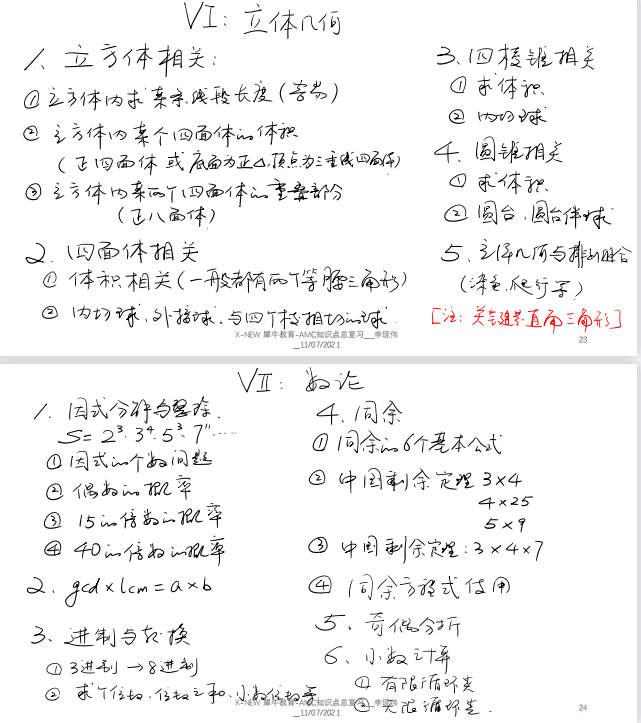 VI: 立体几何
1. 立方体相关:
① 立方体内求某条线段长度(容易)
② 立方体内某个四面体的体积
(正四面体或底面为正△,顶点为三垂线四面体)
③ 立方体内某两个四面体的重叠部分
(正八面体)
2. 四面体相关
① 体积相关(一般都有两个等腰三角形)
② 内切球,外接球,与四个棱相切的球.
3. 四棱锥相关
① 求体积
② 内切球
4. 圆锥相关
① 求体积.
② 圆台,圆台伴球
5. 立体几何与排列组合
(染色,爬行等)
[注: 关键是直角三角形]
X-NEW 犀牛教育-AMC知识点总复习__李现伟
__11/07/2021
23
VII: 数论
1. 因式分解与整除.
S = 2³·3⁴·5³·7¹¹……
① 因式的个数问题
② 偶数的概率
③ 15的倍数的概率
④ 40的倍数的概率
2. gcd×lcm=a×b
3. 进制与转换
① 3进制→8进制
② 求个位数,位数之和,小数位数等
4. 同余
① 同余的6个基本公式
② 中国剩余定理 3×4
4×25
5×9
③ 中国剩余定理: 3×4×7
④ 同余方程式使用
5. 奇偶分析
6. 小数计算
① 有限循环类
② 无限循环类.
X-NEW 犀牛教育-AMC知识点总复习__李现伟
__11/07/2021
24